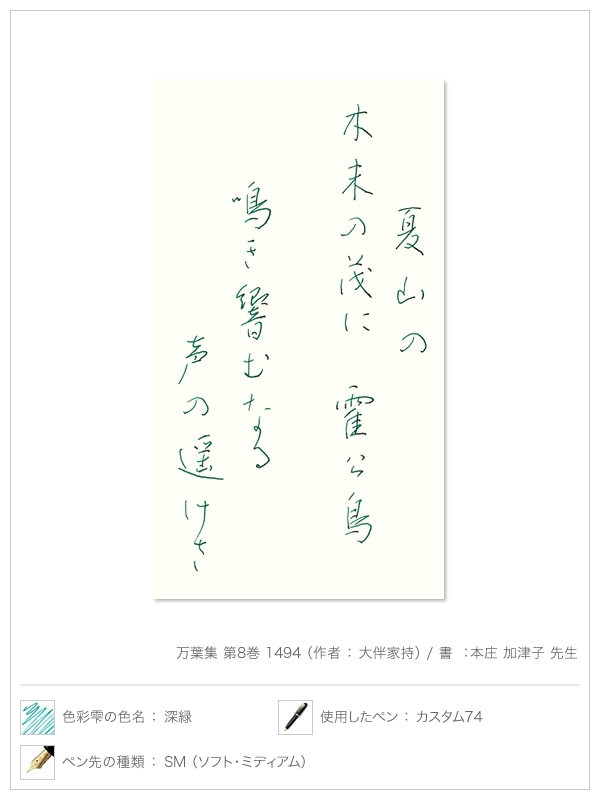 夏山の
木末の茂に 霍公鳥
鳴き響むなる
声の遥けさ
万葉集 第8巻 1494（作者 : 大伴家持）/ 書 : 本庄 加津子 先生
色彩雫の色名 : 深緑
使用したペン : カスタム74
ペン先の種類 : SM（ソフト・ミディアム）